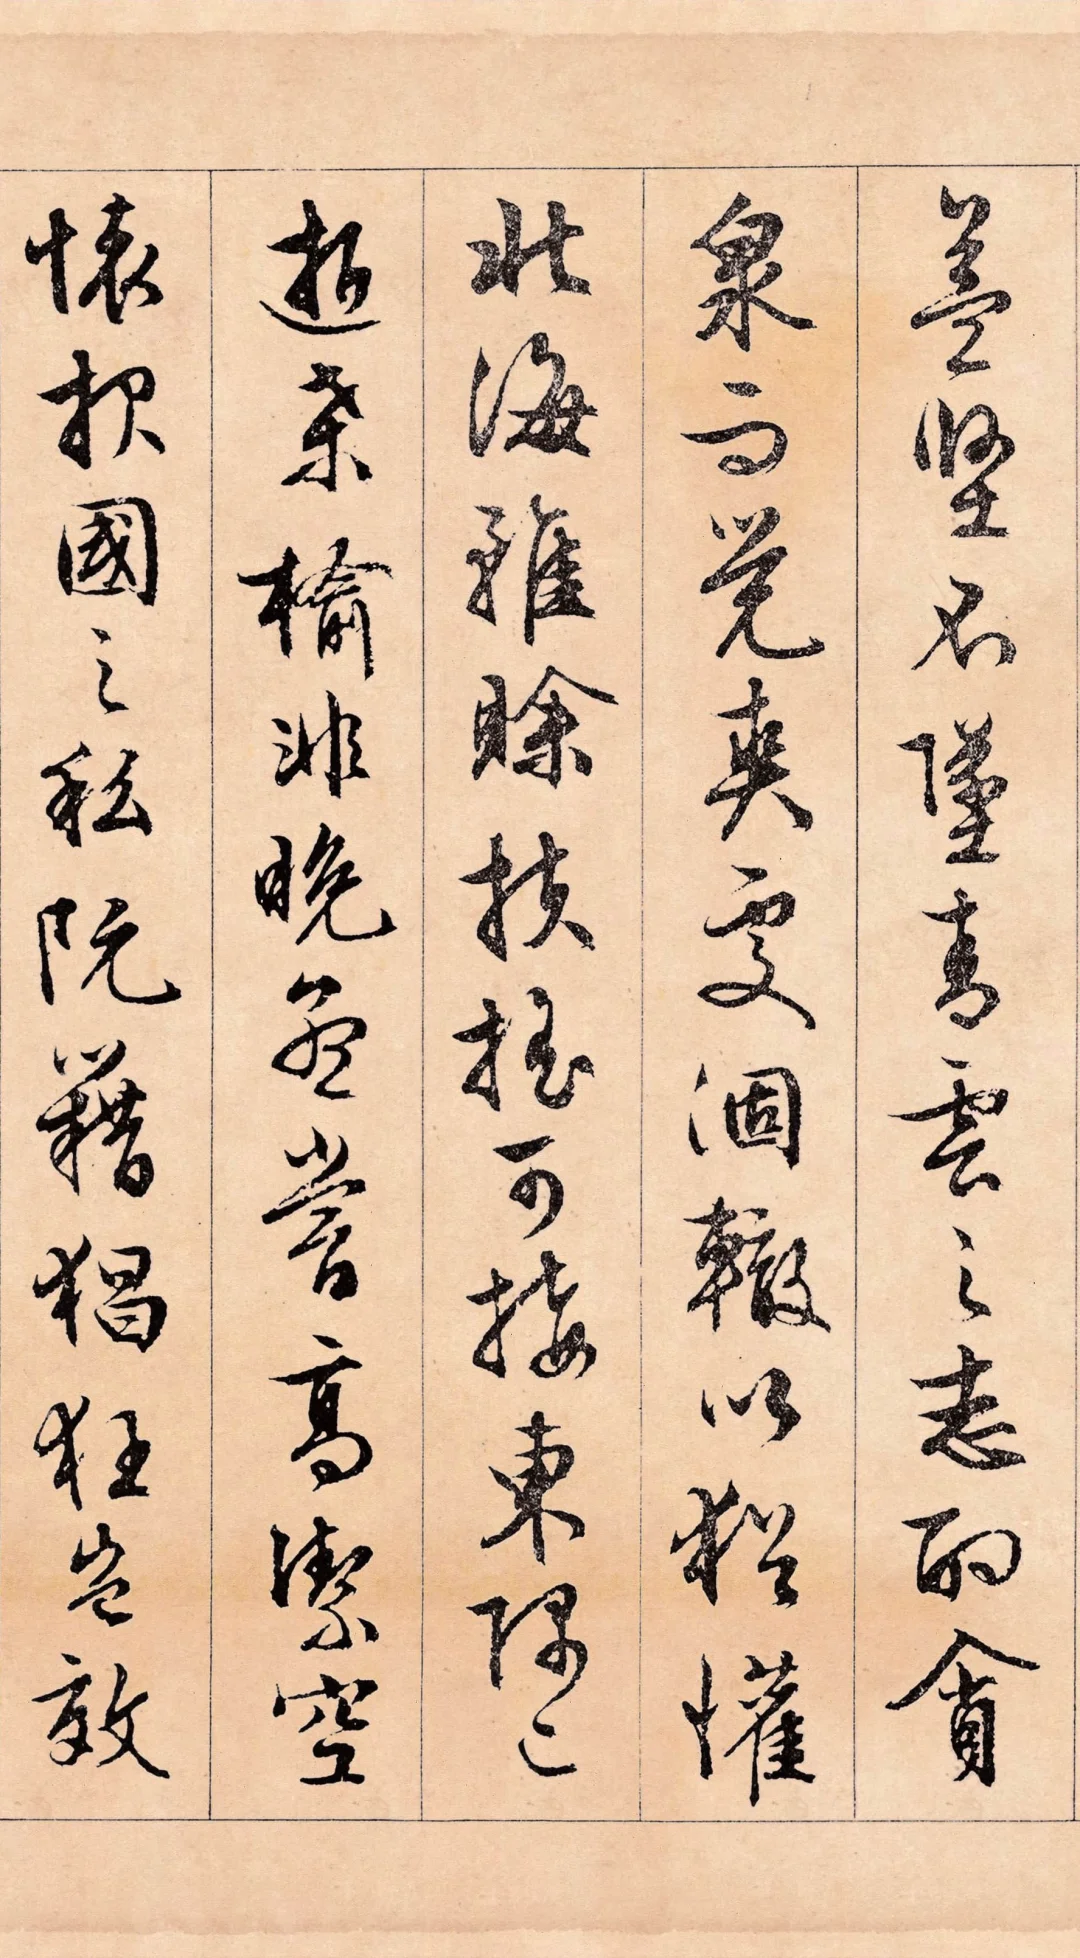 益堅不墜青雲之志酌貪
泉而覺爽處涸轍以猶懽
北海雖賒扶搖可接東隅已
逝桑榆非晚孟嘗高潔空
懷報國之私阮籍猖狂豈效